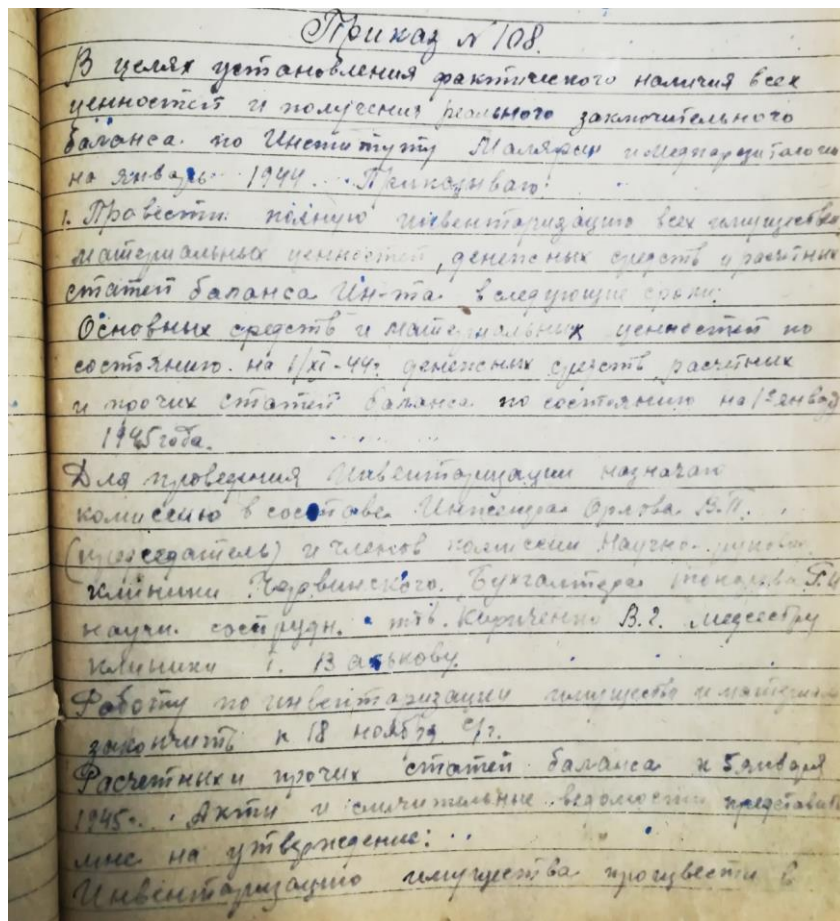 Приказ № 108.
В целях установления фактического наличия всех
ценностей и получения реального заключительного
баланса по Институту Малярии и Медпаразитологии
на январь 1944. Приказываю:
1. Провести полную инвентаризацию всех имуществ
материальных ценностей, денежных средств и расчетных
статей баланса Ин-та в следующие сроки:
Основных средств и материальных ценностей по
состоянию на 1/XI-44г. денежных средств, расчетных
и прочих статей баланса по состоянию на 1е января
1945 года.
Для проведения инвентаризации назначаю
комиссию в составе Инженера Орлова В.П.
(председатель) и членов комиссии Научно
клиники Бухгалтера
научн. сотрудн. тов. Кириченко В.Г. медсестру
клиники т.
Работу по инвентаризации имущества и материал
закончить к 18 ноября с/г.
Расчетных и прочих статей баланса к 5 января
1945г. Акты и сличительные ведомости представить
мне на утверждение:
Инвентаризацию имущества произвести в